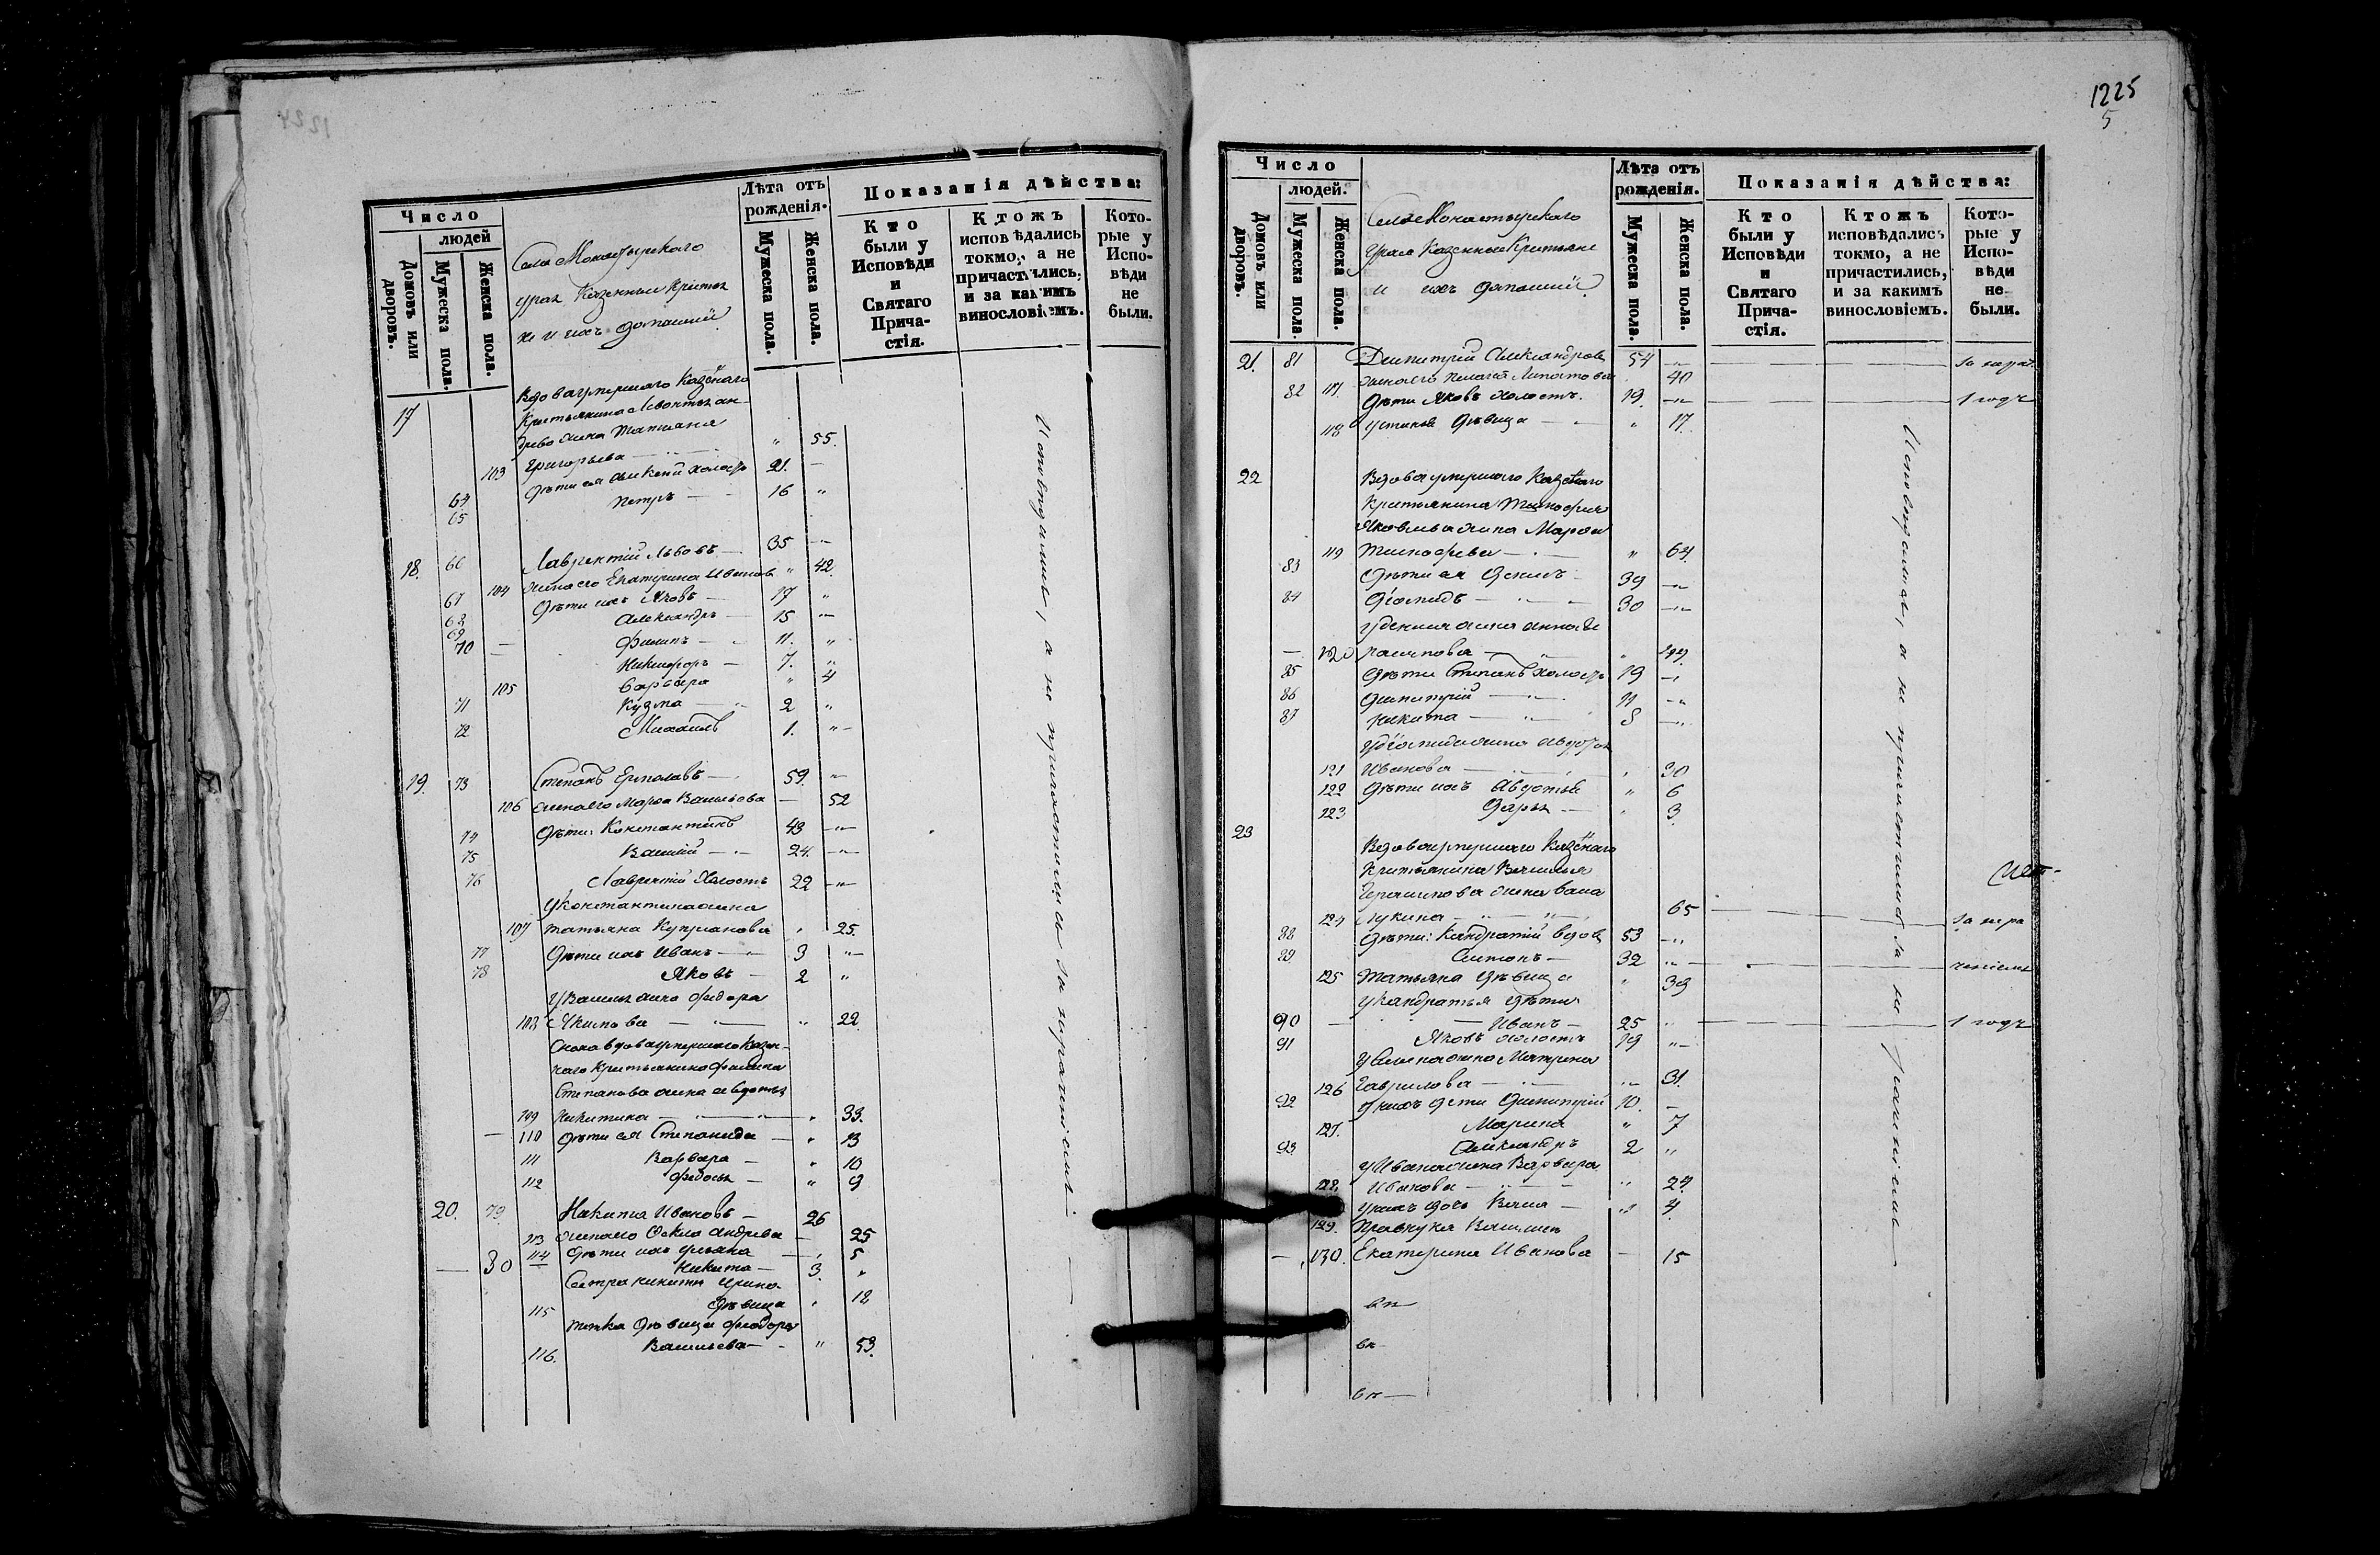 Число
людей
Домовъ или дворовъ.
Мужеска пола.
Женска пола.
Лѣта отъ рожденія.
Мужеска пола.
Женска пола.
Показанія дѣйства:
Кто были у Исповѣди и Святаго Причастія.
Ктожъ исповѣдались токмо, а не причастились, и за какимъ винословіемъ.
Которые у Исповѣди не были.
Села Монастырскаго
Урая Казенные Кристья
не и ихъ домашніи
17
Вдова умершаго Казеннаго
Кристьянина Левонтья Ан-
жена Татьяна
103 Григорьева " 55.
64 Дѣти ея Алексѣй холостъ 21. —
65 Петръ — 16 "
18. 66 Лаврентій Львовъ — 35 —"—
104 жена его Екатерина Иванова " 42.
67 Дѣти ихъ Яковъ — 17 "
68 Александръ — 15 "—
69 Филипъ — 11. "
70 Никифоръ — 7. "
105 Варвара " 4
71 Кузма — 2 "
72 Михаилъ 1. "—
19. 73 Степанъ Ермолавъ — 59. "—
106 жена его Марфа Васильева — 52
74 Дѣти: Константинъ 43 —"—
75 Василій — 24. —"—
76 Лаврентій Холостъ 22 —"—
У Константина жена
107 Татьяна Куприанова " 25.
77 Дѣти ихъ Иванъ — 3 "—
78 Яковъ — 2 "
У Василья жена Федора
108 Якимова — " 22.
Сноха вдова умершаго Казен-
наго Кристьянина Филипа
Степанова жена Авдотья
109 Никитина — " 33.
110 Дѣти ея Степанида — " 13
111 Варвара — " 10
112 Федосья — " 9
20. 79 Иванъ — 26
113 жена его Фекла Андрева — 25
114 Дѣти ихъ Ульяна — " 5
80 Никита — 3. "
Сестра Никиты Ирина
115 дѣвица " 12
Тетка дѣвица Феодора
116. Васильева — " 53.
Исповѣдались, а не причастились за нераченіемъ
1225
5
Число
людей.
Домовъ или дворовъ.
Мужеска пола
Женска пола.
Лѣта отъ рожденія.
Мужеска пола.
Женска пола.
Показанія дѣйства:
Кто были у Исповѣди и Святаго Причастія.
Ктожъ исповѣдались токмо, а не причастились, и за какимъ винословіемъ.
Которые у Исповѣди не были.
Села Монастырскаго
Урая Казенные Кристьяне
и ихъ домашніи
21. 81 Димитрій Александровъ 54 —"— за нерач.
117. жена его Пелагея 40
82 Дѣти Яковъ холостъ. 19. —"— 1 годъ
118 Устинья Дѣвица — " 17.
22 Вдова умершаго Казеннаго
Кристьянина Тимофея
Яковлева жена Марфа
119 Тимофева — " 64.
83 Дѣти ея 39 —"—
84 Діомидъ — 30 —"—
жена Анна Ге
120 расимова — " 44.
85 Дѣти Степанъ холостъ 19 —"
86 Димитрій — 11 —"
87 Никита — 8 —"
У Діомида жена Авдотья
121 Иванова — " 30
122 Дѣти ихъ Авдотья " 6
123 Дарья — " 3.
23
Вдова умершаго Казеннаго
Кристьянина Василья
Герасимова жена Васа
124 Лукина — " 65 за нера
88 Дѣти: Кандратій вдовъ 53 —"
89. Симонъ — 32 "— ченіемъ
125 Татьяна Дѣвица " 39
У Кандратья дѣти
90 Иванъ — 25 " 1 годъ
91 Яковъ холостъ 19 "—
У Симона жена Матрена
126 Гаврилова — "— 31.
92 У нихъ дети Димитрій 10. —
127. Марина " 7
93. Александръ 2 "
У Ивана жена Варвара
128. Иванова — " 24.
129. У нихъ дочь Васа — " 4.
Правнука Василья
130. Екатерина Иванова — 15
Исповѣдались, а не причастились за не раченіемъ